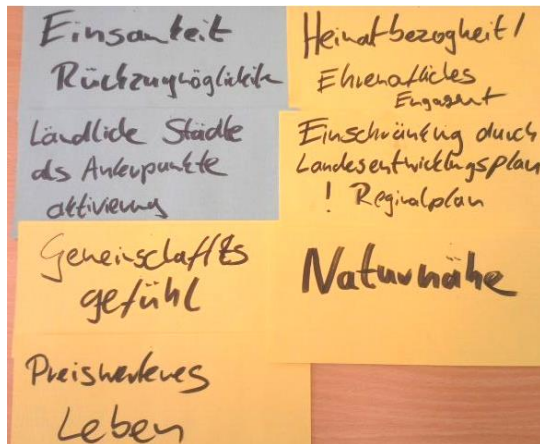 Einsamkeit
Rückzugmöglichkeiten
Ländliche Städte
als Ankerpunkte
aktivierung
Gemeinschafts
gefühl
Preiswerteres
Leben
Heimatbezogheit /
Ehrenatliches
Engagemt
Einschränkung durch
Landesentwicklungsplan
! Reginalplan
Naturnähe